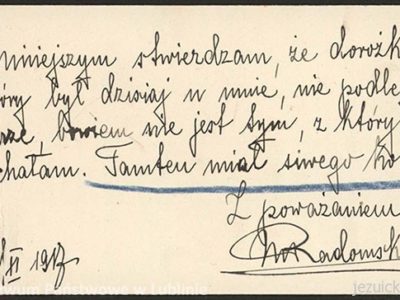 niniejszym stwierdzam, że dorożk
óry był dzisiaj u mnie, nie podle
rze, bowiem nie jest tym, z któryj
chałam. Tamten miał siwego ko
Z poważaniem
Radomsk
II 1917
wum Państwowe w Lublinie
jezuick